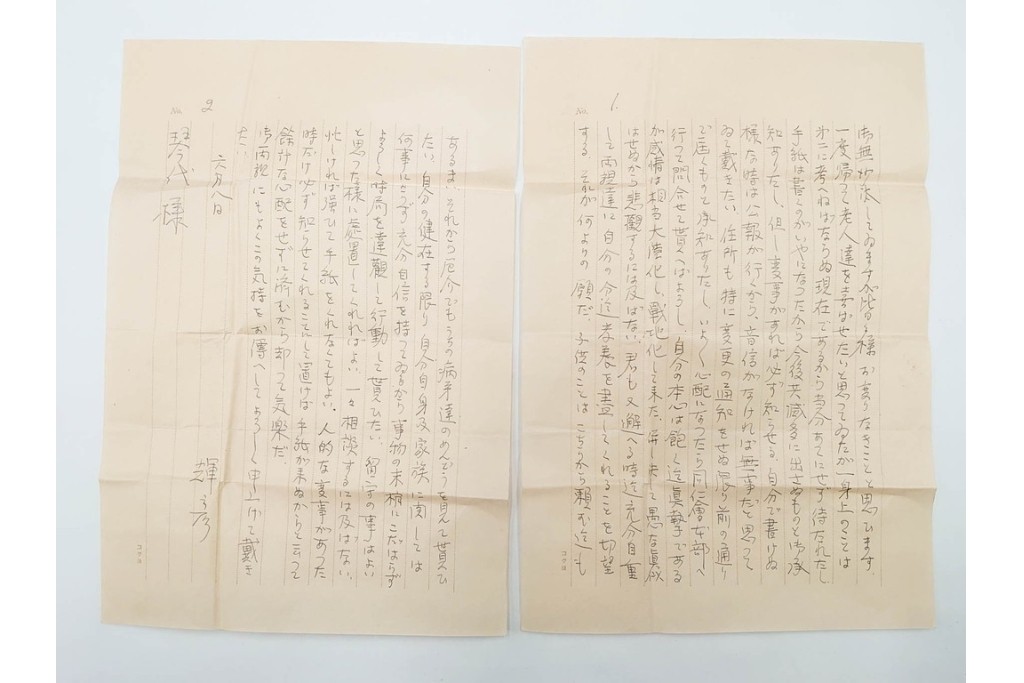 No. 1.
御無沙汰してゐますが皆々様お変りなきことと思ひます。
一度帰って老人達を喜ばせたいと思ってゐたが一身上のことは
次に考へねばならぬ現在であるから当分あてにせず待たれたし
手紙は書くのがいやになったから今後共滅多に出さぬものと御承
知ありたし、但し変事があれば必ず知らせる、自分で書けぬ
様な時は公報が行くから、音信がなければ無事だと思って
ゐて戴きたい 住所も特に変更の通知をせぬ限り前の通り
で届くもので承知ありたし、いよ〱心配になったら同仁会本部へ
行って問合せて貰へばよろし、自分の本心は飽く迄真摯である
が感情は相当大陸化し、戦地化して来た。
はせぬから悲観するには及ばない、君も又解へる時迄充分自重
して両親達に自分の分迄孝養を尽してくれることを切望
する それが何よりの願だ、子供のことはこちらから頼む迄も
No. 2
あるまい それから厄介でもうちの病弟達のめんどうを見て貰ひ
たい、自分の健在する限り自分自身及家族に関しては
何事によらず充分自信を持ってゐるから事物の末梢にこだはらず
よろしく時局を達観して行動して貰ひたい、留守の事はよい
と思った様に処置してくれればよい 一々相談するには及ばない、
忙しければ強ひて手紙をくれなくてもよい、人的な変事があった
時だけ必ず知らせてくれることにして置けば手紙が来ぬからと云って
餘計な心配をせずに済むから却って気楽だ、
御両親にもよくこの気持をお傳へしてよろしく申上げて戴き
たい
六月八日
輝彦
琴代様
コクヨ
コクヨ